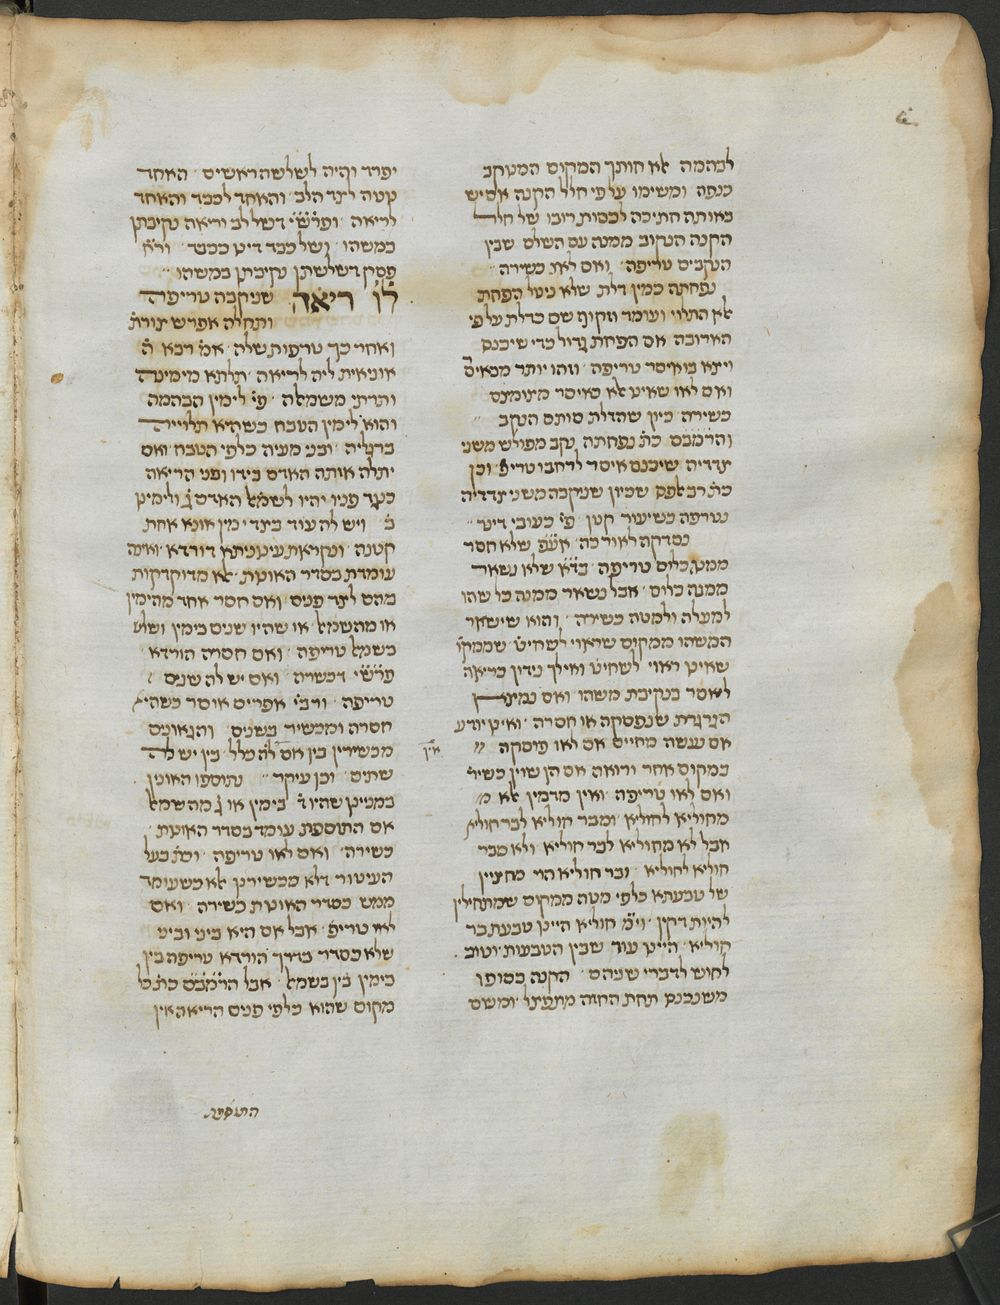 לבהמה אא חותך המקום המנוקב
כנפה ומשימו על פי חלל הקנה אם יש
באותה חתיכה לכסות רובו של חלל
הקנה הנקוב ממנה עם השלם שבין
הנקבים טריפה ואם לאו כשירה
נפחתה כמין דלת שלא ניטל הפחת
אא תלוי ועומד וזקוף שם כדלת על פי
הארובה אם הפחת גדול כדי שיכנס
ויצא בו איסר טריפה וזהו יותר מכאיס'
ואם לאו שאינו אא כאיסר מצומצם
כשירה כיון שהדלת סותם הנקב
והרמב"ם כת' נפחתה נקב מפולש משני
צדדיה שיכנס איסר לרחבו טריפ' וכן
כת' רב אלפס שכיון שניקבה משני צדדיה
נטרפה בשיעור קטן פי' כעובי דינר
נסדקה לאורכה אע"פ שלא חסר
ממנה כלום טריפה בד"א שלא נשאר
ממנה כלום אבל נשאר ממנה כל שהו
למעלה ולמטה כשירה והוא שישאר
המשהו ממקום שראוי לשחיט' שממקו'
שאינו ראוי לשחיט' ואילך נידון כריאה
ליאסר בנקיבת משהו ואם נמצאת
הגרגרת שנפסקה או חסרה ואינו יודע
אם נעשה מחיים אם לאו פוסקה
אין
במקום אחר ורואה אם הן שוין כשיר'
ואם לאו טריפה ואין מדמין אא מ'
מחוליא לחוליא ומבר חוליא לבר חוליא
אבל לא מחוליא לבר חוליא ולא מבר
חוליא לחוליא ובר חוליא הוי מחציין
של טבעתא כלפי מטה ממקום שמתחילין
להיות דקין וי"מ חוליא היינו טבעת בר
חוליא היינו עור שבין הטבעות וטוב
לחוש לדברי שניהם הקנה בסופו
משנכנס תחת החזה מתפצל ומשם
יפרד והיה לשלשה ראשים האחד
נוטה לצד הלב והאחד לכבד והאחד
לריאה ופרש"י דשל לב וריאה נקיבתן
במשהו ושל כבד דינו ככבד ור"א
פסק דשלשתן נקיבתן במשהו
לו ריאה שניקבה טריפה
ותחלה אפרש צורת'
ואחר כך טרפות שלה אמ' רבא ה'
אוניאית ליה לריאה תלתא מימינה
ותרתי משמאלה פי' לימין הבהמה
והוא לימין הטבח כשהיא תלוייה
ברגליה ובני מעיה כלפי הטבח ואם
יתלה אותה האדם בידו ופני הריאה
כנגד פניו יהיו לשמאל האדם ג' ולימינו
ב' ויש לה עוד בצד ימין אונא אחת
קטנה ונקראת עינוניתא דורדא ואינה
עומדת בסדר האונות אא מדוקדקות
מהם לצד פנים ואם חסר אחד מהימין
או מהשמאל או שהיו שנים בימין ושלש
בשמאל טריפה ואם חסרה הורדא
פרש"י דכשרה ואם יש לה שנים
טריפה ורבי' אפרים אוסר כשהיא
חסרה ומכשיר בשנים והגאונים
מכשירין בין אם לה כלל בין יש לה
שתים וכן עיקר נתוספו האונין
במניינן שהיו ד' בימין או ג' מהשמאל
אם התוספת עומד בסדר האונות
כשירה ואם לאו טריפה וכת' בעל
העיטור דלא מכשירינן אא כשעומד
ממש בסדר האונות כשירה ואם
לאו טריפ' אבל אם היא ביני וביני
שלא כסדר בדרך הורדא טריפה בין
בימין בין בשמאל אבל הרמב"ם כת' כל
מקום שהוא כלפי פנים הריאה אין
התוספת